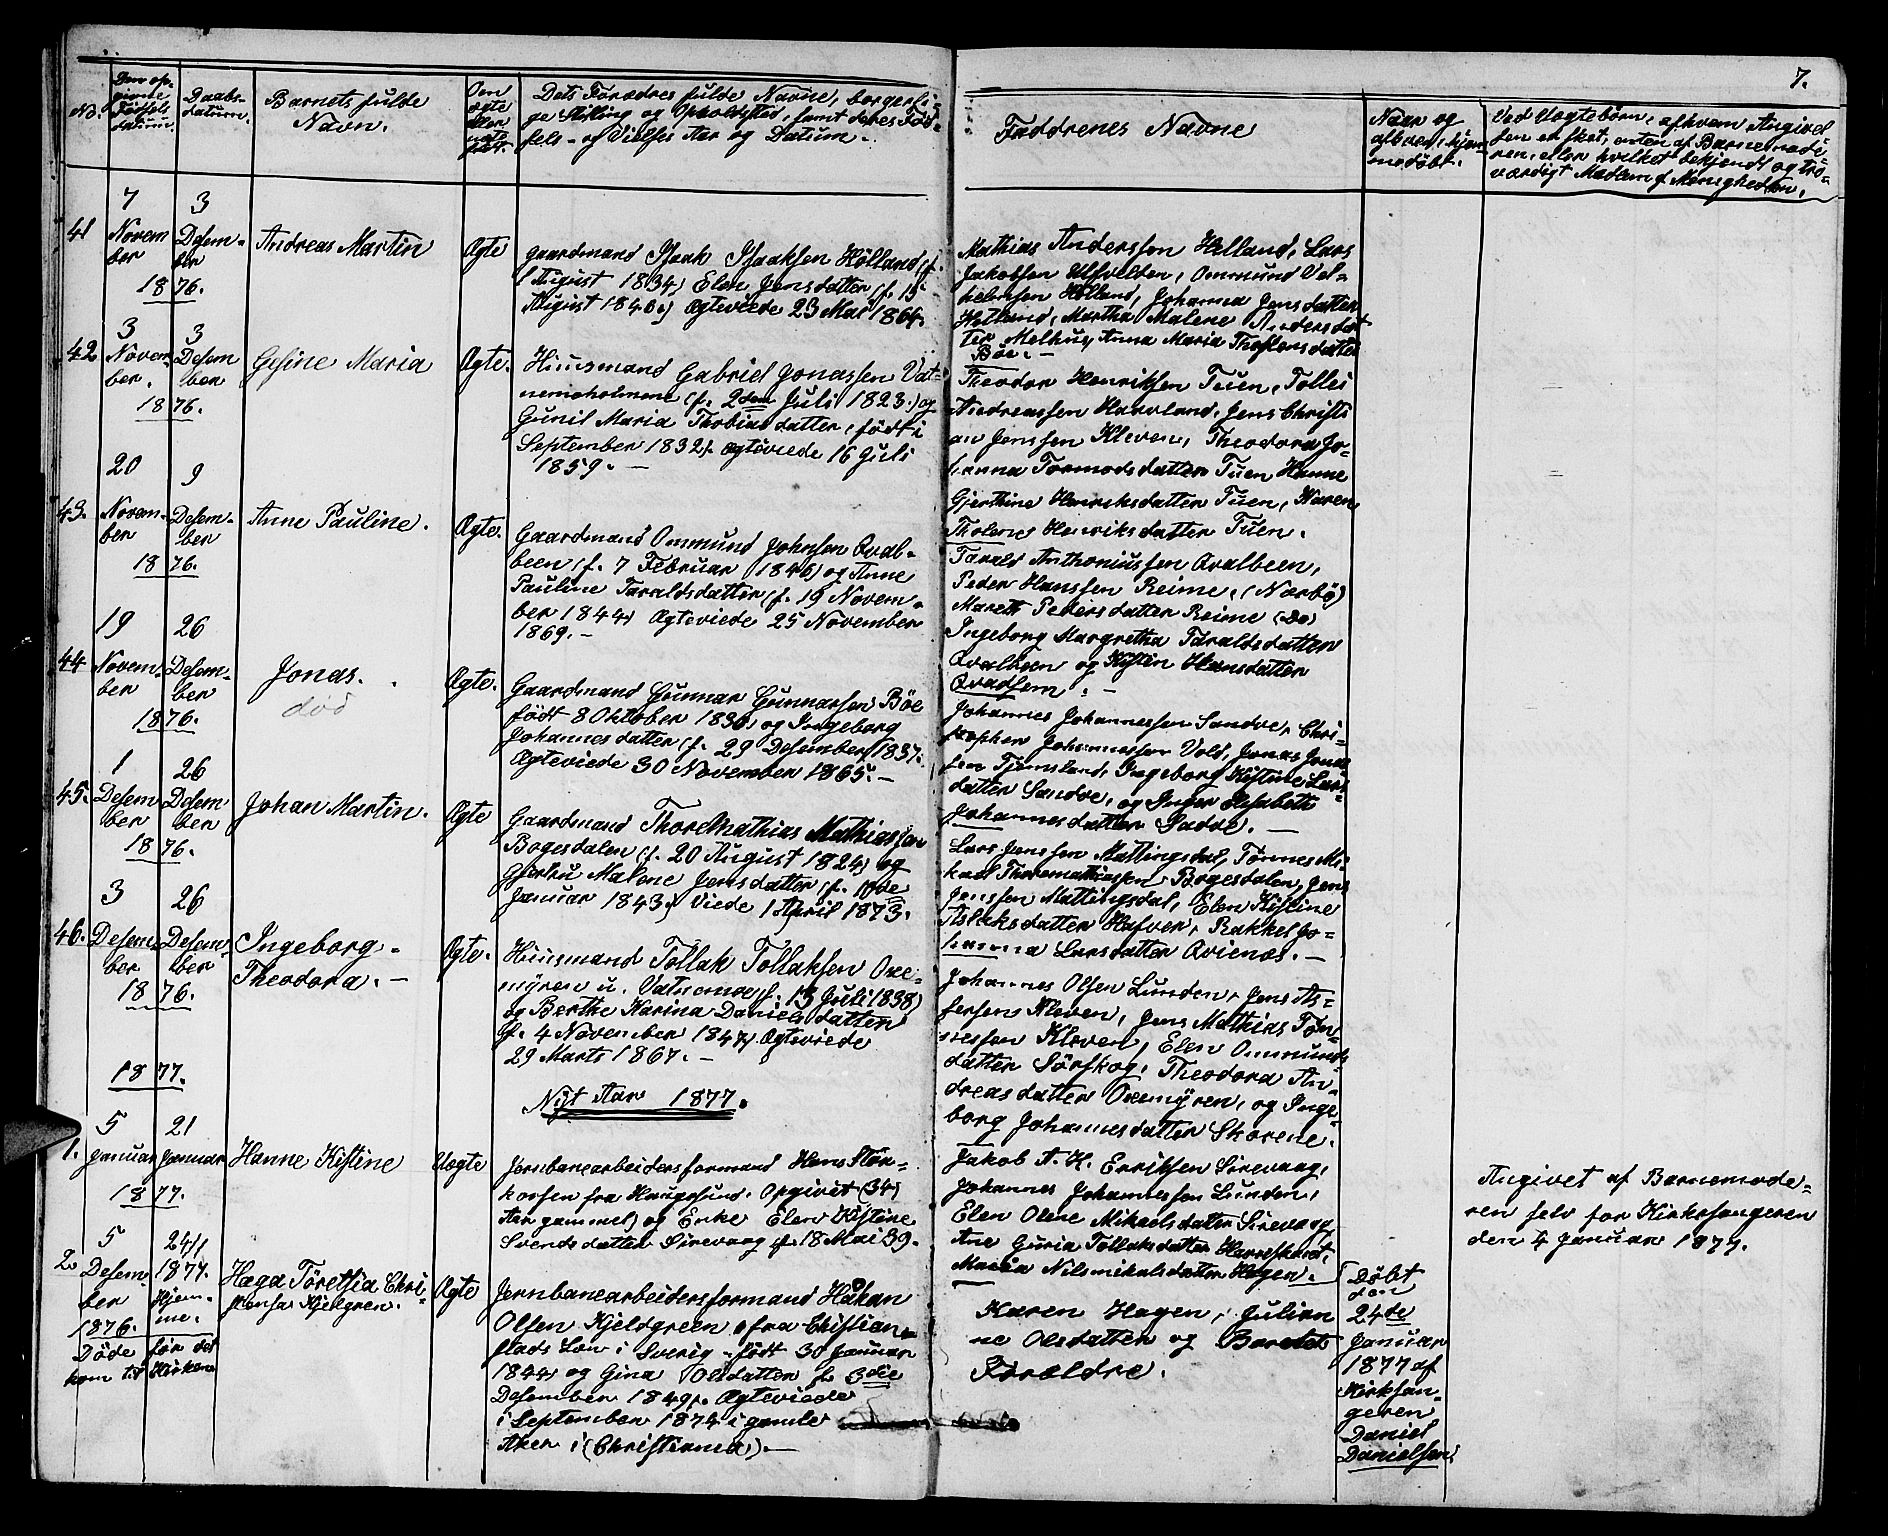 7.
No.
Den op-
givne
Fødsels
datum.
Daabs-
datum.
Barnets fulde
Navn.
Om
ægte
eller
uægte
født.
Dets Forældres fulde Navne, borgerli-
ge Stilling og Opholdsted, samt deres Fød-
sels- og Vielses Aar og Datum.
Faddrenes Navne
Naar og
af hvem hjem-
medøbt.
Ved Uægtebørn, af hvem Angivel
sen er sket, enten af Barnemode-
ren, eller hvilket bekjendt og tro-
værdigt Medlem af Menigheden.
41
7
Novem
ber
3
Desem-
ber
1876.
Andreas Martin
Ægte
gaardmand Isaak Isaaksen Hölland, (f.
1 August 1834) Elen Jensdatter (f. 15
August 1840.) Ægteviede 23 Mai 1864.
Mathias Anderssen Helland, Lars
Jakobsen Ulfvelten, Ommund Vel-
helmsen Hölland, Johanna Jensdatter
Hetland, Martha Malene Andersdat
ter Melhus, Anna Maria Thostensdatter
Böe. -
42
3
Novem-
ber.
3
Desem
ber
1876.
Gesine Maria
Ægte.
Huusmand Gabriel Jonassen Vat-
nemoholmene (f. 2den Juli 1823.) og
Gunil Maria Thobiasdatter, født i
September 1832). Ægteviede 16 Juli
1859. -
Theodor Henriksen Tuen, Tolles
Andreassen Havland, Jens Christi
an Jenssen Kleven, Theodora Jo-
hanna Tormodsdatter Tuen Hanne
Gjerthine Henriksdatter Tuen, Karen
Tholene Henriksdatter Tuen.
43.
20
Novem-
ber
9
Desem-
ber
1876.
Anne Pauline.
Ægte.
Gaardmand Ommund Johnsen Qval-
been (f. 7 Februar 1846) og Anne
Pauline Taraldsdatter (f. 19 Novem-
ber 1844) Ægteviede 25 November
1869. -
Tarald Anthoniussen Qvalbeen,
Peder Hanssen Reime, (Nærbö)
Marett Pedersdatter Reime (Do)
Ingeborg Margretha Taraldsdatter
Qvalbeen og Kistin Hansdatter
Qvadsem. -
44
19
Novem-
ber
26
Desem-
ber
1876.
Jonas.
död
Ægte.
Gaardmand Gunnar Gunnarsen Böe
født 8 Oktober 1830) og Ingeborg
Johannesdatter (f. 29 Desember 1837.
Ægteviede 30 November 1865. -
Johannes Johannessen Sandve, Chri-
stopher Johannessen Vold, Jonas Jonas
sen Tjemsland, Ingeborg Kistine Lars-
datter Sandve, og Inger Elisabeth
Johannesdatter Sadve. -
45.
1
Desem
ber
26
Desem
ber
1876.
Johan Martin.
Ægte
Gaardmand Thore Mathias Mathiassen
Bogesdalen (f. 20 August 1824) og
Gjertru Malene Jensdatter (f. 10de
Januar 1843.) Viede 1 April 1873.
Lars Jenssen Mattingsdal, Tønnes Mi-
kael Thoremathiassen Bogesdalen, Jens
Jenssen Mattingsdal, Elen Kistine
Aslaksdatter Hafver, Rakkel Jo-
hanna Larsdatter Qvienæs. -
46.
3
Desem-
ber
26
Desem-
ber
1876.
Ingeborg
Theodora. -
Ægte.
Huusmand Tollak Tollaksen Oxe-
myren u. Vatnemoe (f. 13 Juli 1838)
og Berthe Karina Danielsdatter
(f. 4 November 1847) Ægteviede
29 Marts 1867. -
Johannes Olsen Lunden, Jens As-
sersens Kleven, Jens Mathias Tøn-
nessen Kleven, Elen Ommunds
datter Sørskog, Theodora An-
dreasdatter Oxemyren, og Inge-
borg Johannesdatter Skorene.
1877.
Nyt Aar 1877.
1.
5
Januar
21
Januar
1877.
Hanne Kistine
Uægte
Jernbanearbeidersformand Hans Stor-
korsen fra Haugesund. Opgivet (34)
Aar gammel) og Enke Elen Kistine
Svendsdatter Sirevaag (f. 18 Mai 39.
Jakob A. H. Erriksen Sirevaag,
Johannes Johannessen Lunden,
Elen Olene Mikaelsdatter Sirevaag
Ane Guria Tollaksdatter Harreskaret,
Maria Nilsmikalsdatter Hogen.
Angivet af Barnemode-
ren selv for Kirkesangeren
den 4 Januar 1877.
2.
5
Desem-
ber
1876.
24/1
1877.
Hjem-
me.
Döde før det
kom til Kirken
Hæga Töretsia Chri-
stensa Kjelgren.
Ægte
Jernbanearbeidersformand Håkan
Olsen Kjeldgreen fra Christian-
stads Læn i Sverig - født 30 Januar
1844) og Gina Olsdatter f. 3die
Desember 1849). Ægteviede
i September 1874 i gamle
Aker i (Christiania). -
Karen Hagen, Julian
ne Olsdatter og Barnets
Forældre.
Döbt
den
24de
Januar
1877 af
Kirksan-
geren
Daniel
Danielsen.